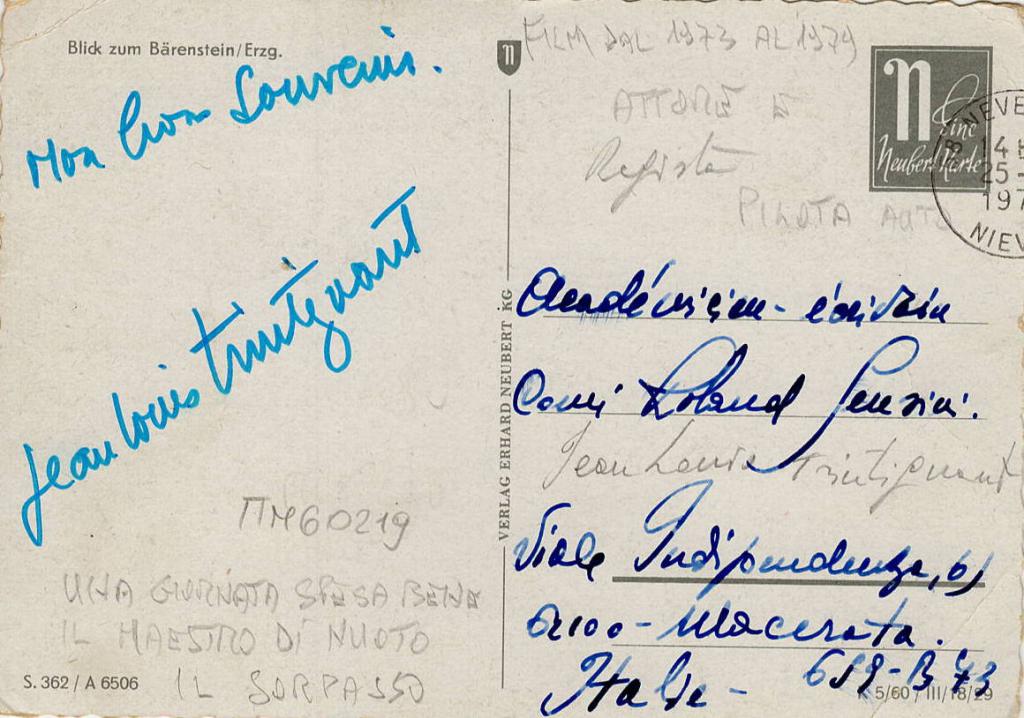 Blick zum Bärenstein/Erzg.
Mon bon Souvenir.
Jean Louis Trintignant
ПM60219
UNA GIORNATA SPESA BENE
IL MAESTRO DI NUOTO
IL SORPASSO
S. 362 / A 6506
VERLAG ERHARD NEUBERT KG
n
(FILM DAL 1973 AL 1979)
ATTORE E
Regista
PILOTA AUTO
n
Eine
Neubert Karte
NIEV
Académicien - écrivain
Roland
Jean Louis Trintignant
Viale Indipendenza, 61
62100 - Macerata.
Italie -
659-B'73
5/60 / III/18/29